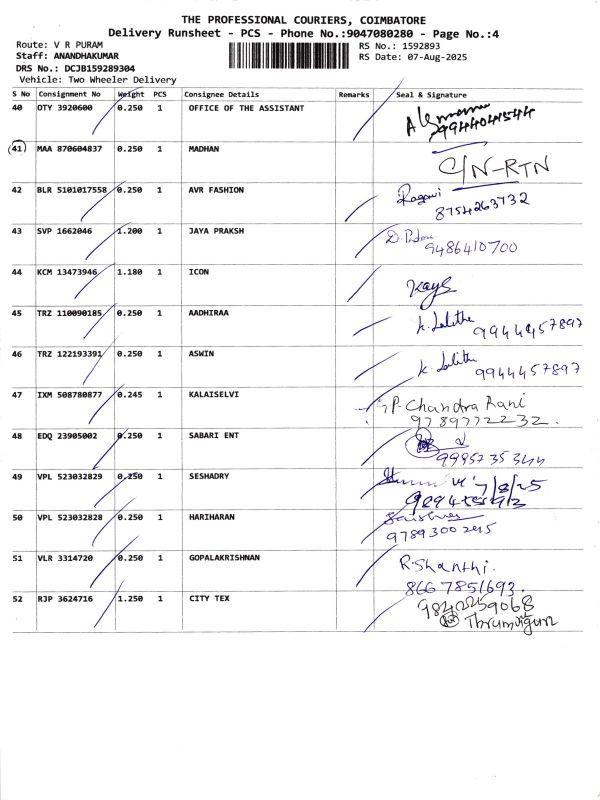 THE PROFESSIONAL COURIERS, COIMBATORE
Delivery Runsheet - PCS - Phone No.:9047080280 - Page No.:4
Route: V R PURAM RS No.: 1592893
Staff: ANANDHAKUMAR RS Date: 07-Aug-2025
DRS No.: DCJB159289304
Vehicle: Two Wheeler Delivery
S No Consignment No Weight PCS Consignee Details Remarks Seal & Signature
40 OTY 3920600 0.250 1 OFFICE OF THE ASSISTANT
9944041544
41 MAA 870604837 0.250 1 MADHAN C/N-RTN
42 BLR 5101017558 0.250 1 AVR FASHION Ragavi
8754263732
43 SVP 1662046 1.200 1 JAYA PRAKSH D.
9486410700
44 KCM 13473946 1.180 1 ICON
45 TRZ 110090185 0.250 1 AADHIRAA K. Lalitha
9944457897
46 TRZ 122193391 0.250 1 ASWIN K. Lalitha
9944457897
47 IXM 508780877 0.245 1 KALAISELVI P. Chandra Rani
9789772232.
48 EDQ 23905002 0.250 1 SABARI ENT
9995735344
49 VPL 523032829 0.250 1 SESHADRY 7/8/25
50 VPL 523032828 0.250 1 HARIHARAN
9789300295
51 VLR 3314720 0.250 1 GOPALAKRISHNAN R. Shanthi.
8667851693.
52 RJP 3624716 1.250 1 CITY TEX 9842259068